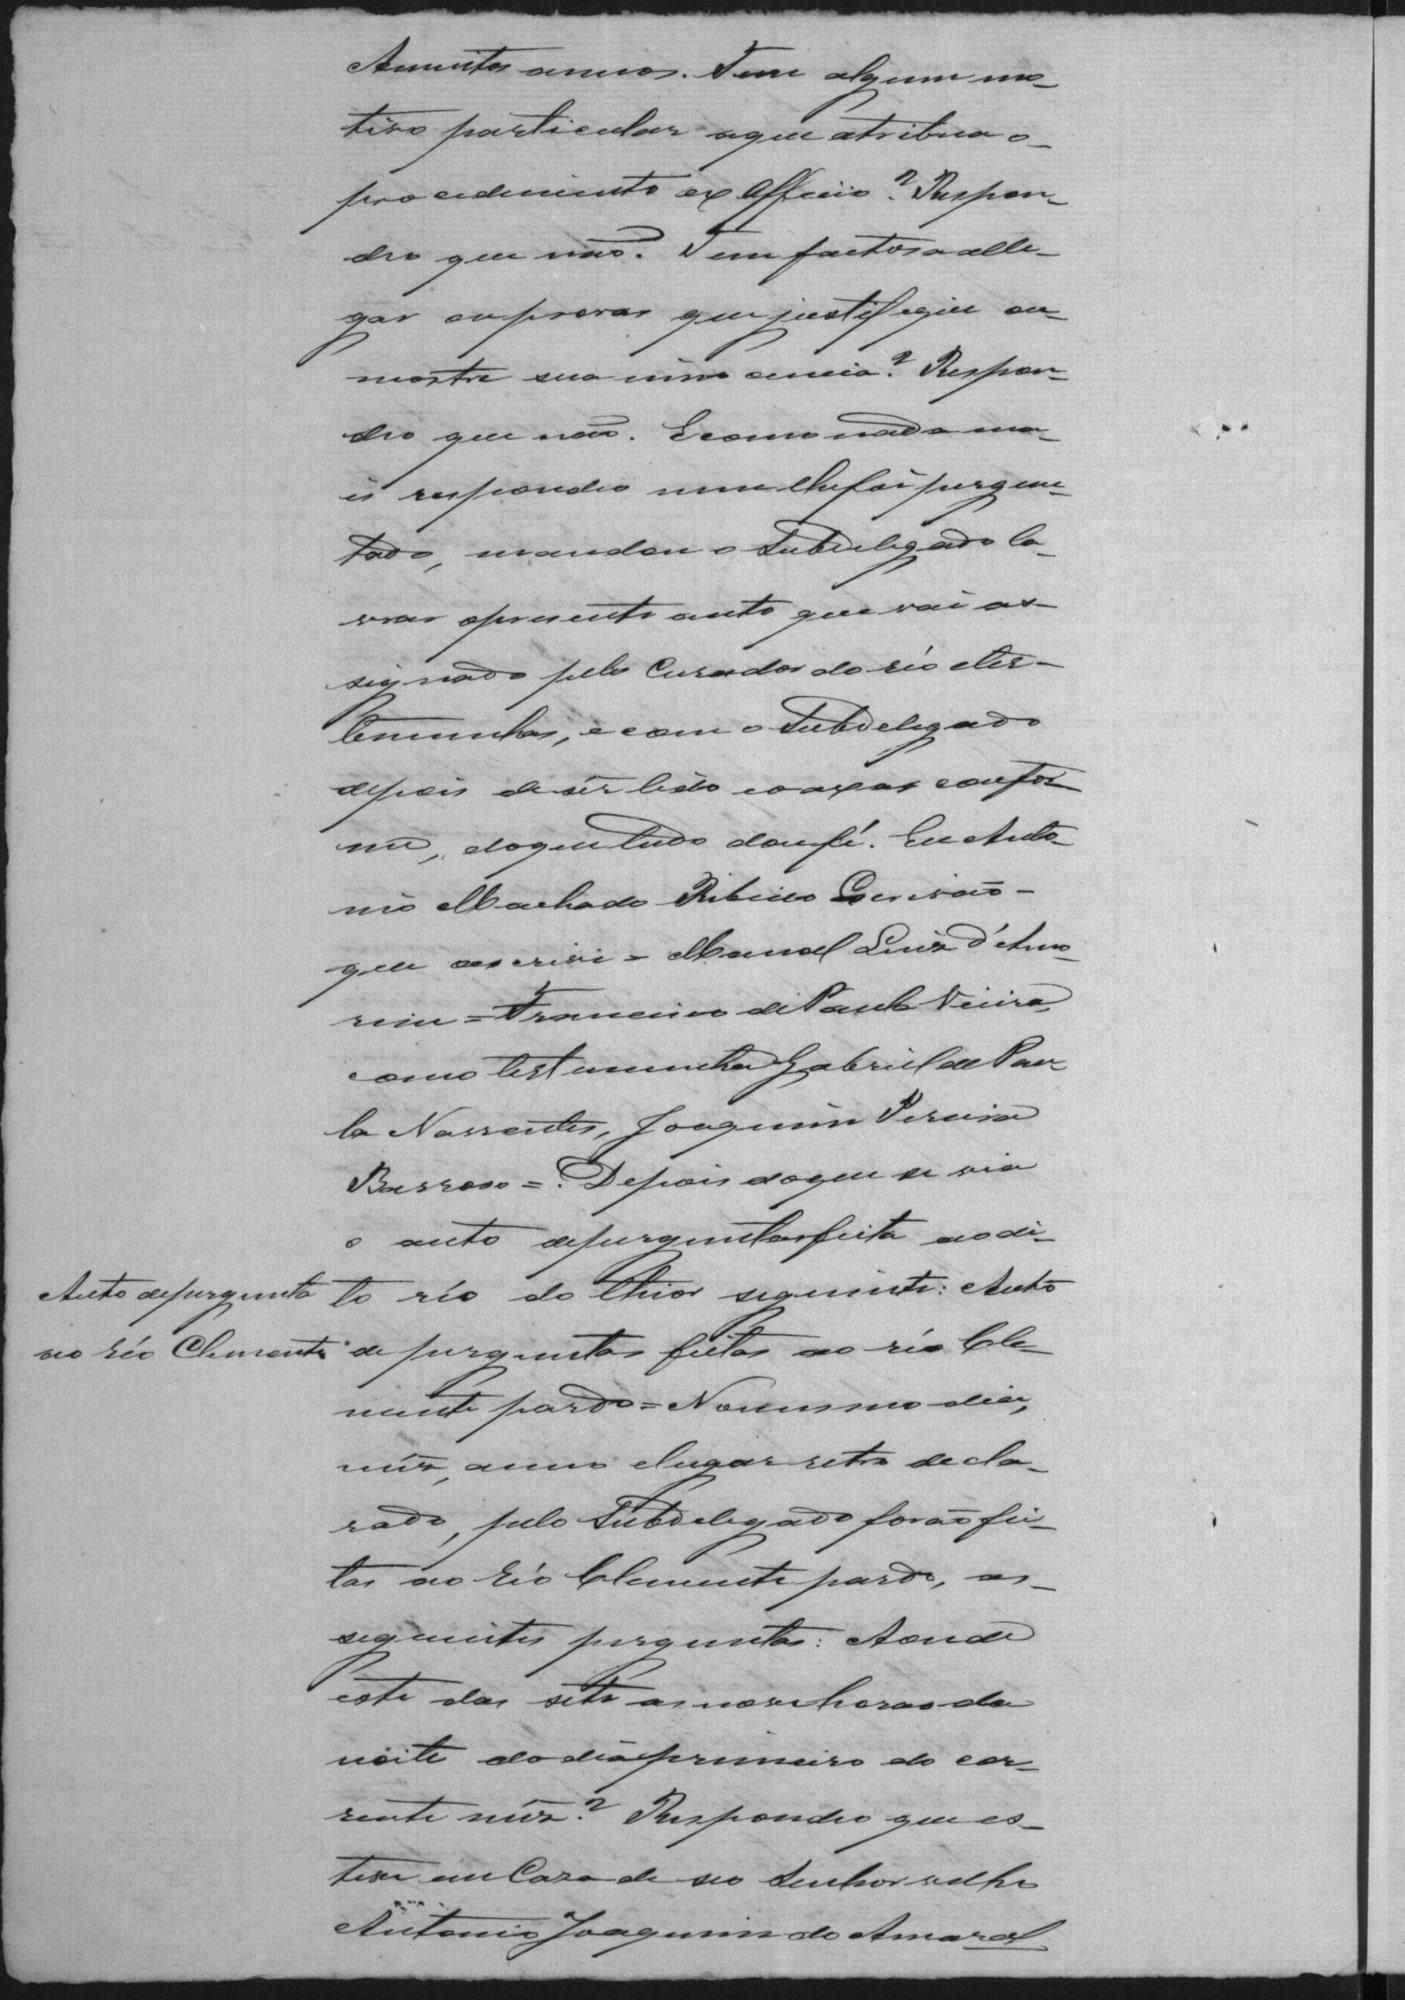 A muitos annos. Tem algum mo-
tivo particular a que atribua o
procedimento ex officio? Respon-
deo que não. Tem factos a alle-
gar ou provas que justifique ou
mostre sua innocencia? Respon-
deo que não. E como nada ma-
is respondeo nem lhe foi pergun-
tado, mandou o Subdelegado la-
vrar o presente auto que vai as-
signado pelo Curador do réo e tes-
temunhas, e com o Subdelegado
depois de sêr lido e o axar confor-
me, do que tudo dou fé. Eu Anto-
nio Machado Ribeiro Escrivão -
que escrivi = Manoel Luiz d'Amo-
rim = Francisco de Paula Vieira,
como testemunha Gabriel de Pau-
la Navantes, Joaquim Pereira
Barroso =. Depois do que se via
o auto de perguntas feita ao di-
to réo do theor seguinte: Auto
de perguntas feitas ao réo Cle-
mente pardo = No mesmo dia,
mêz, anno e lugar retro decla-
rado, pelo Subdelegado forão fei-
tas ao réo Clemente pardo, as-
seguintes perguntas: Aonde
este das sete as nove horas da
noite do dia primeiro do cor-
rente mêz? Respondeo que es-
teve em Caza de seo Senhor velho
Antonio Joaquim do Amaral
Auto de pergunta
ao réo Clemente